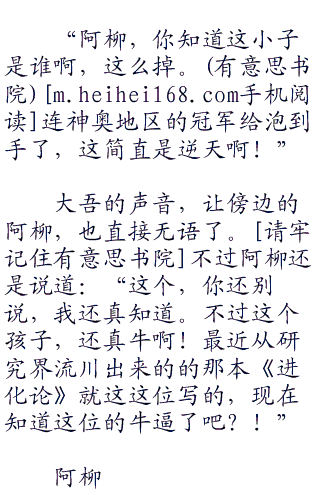 “阿柳，你知道这小子
是谁啊，这么掉。(有意思书
院)[m.heihei168.com手机阅
读]连神奥地区的冠军给泡到
手了，这简直是逆天啊！”
大吾的声音，让傍边的
阿柳，也直接无语了。[请牢
记住有意思书院]不过阿柳还
是说道：“这个，你还别
说，我还真知道。不过这个
孩子，还真牛啊！最近从研
究界流川出来的的那本《进
化论》就这这位写的，现在
知道这位的牛逼了吧？！”
阿柳